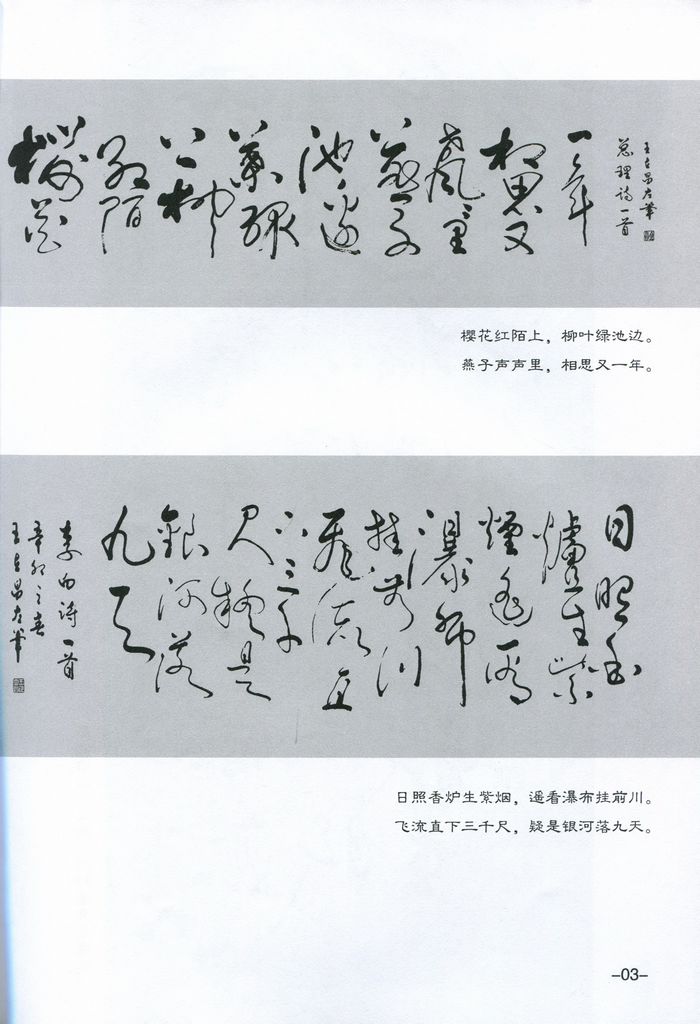 櫻花
紅陌
上柳
葉绿
池邊
燕子
聲聲里
相思又
一年
总理诗一首
王立昌左筆
樱花红陌上，柳叶绿池边。
燕子声声里，相思又一年。
日照香
爐生紫
煙遥看
瀑布
挂前川
飛流直
下三千
尺疑是
銀河落
九天
李白诗一首
辛卯之春
王立昌左筆
日照香炉生紫烟，遥看瀑布挂前川。
飞流直下三千尺，疑是银河落九天。
–03–